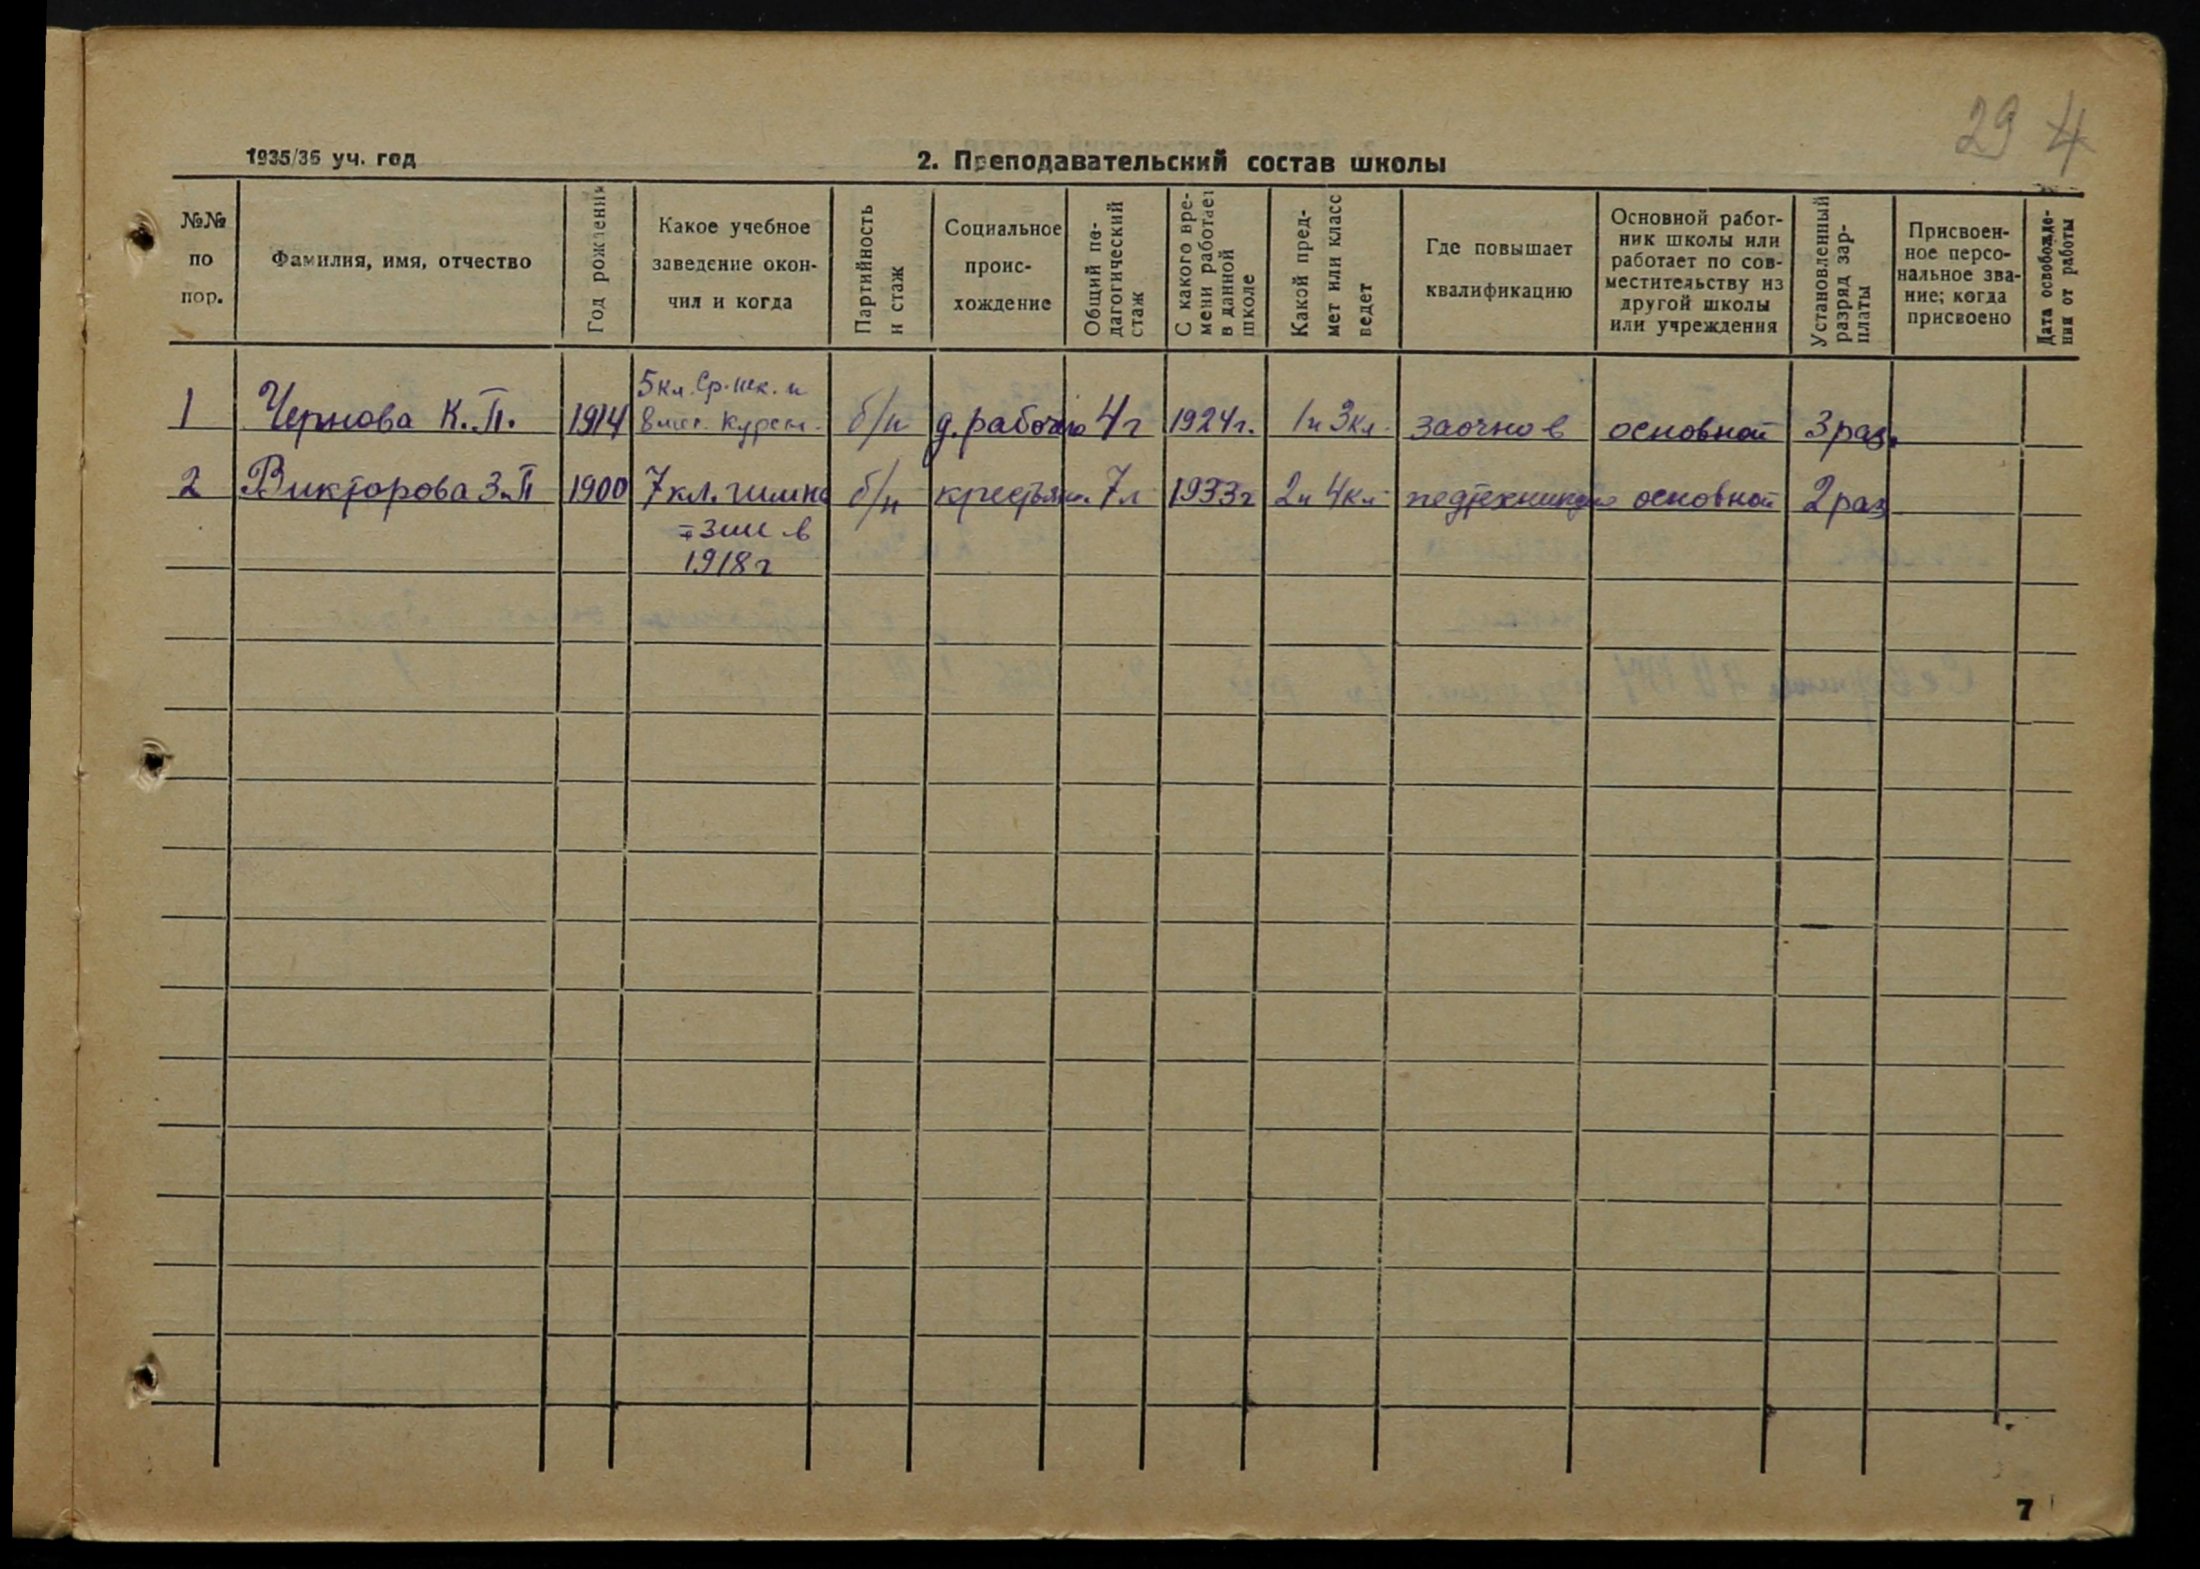 29 4
1935/36 уч. год
2. Преподавательский состав школы
№№ по пор.
Фамилия, имя, отчество
Год рождения
Какое учебное заведение окон-чил и когда
Партийность и стаж
Социальное проис-хождение
Общий пе-дагогический стаж
С какого вре-мени работает в данной школе
Какой пред-мет или класс ведет
Где повышает квалификацию
Основной работ-ник школы или работает по сов-местительству из другой школы или учреждения
Установленный разряд зар-платы
Присвоен-ное персо-нальное зва-ние; когда присвоено
Дата освобожде-ния от работы
5кл. Ср. шк. и
1 Чернова К.П. 1914 8 мес. курсы. б/п д. рабочего 4 г 1924 г. 1 и 3 кл. заочно в основной 3 раз.
2 Викторова З.П 1900 7 кл. гимна б/п крестьян. 7 л 1933 г 2 и 4 кл педтехникуме основной 2 раз
=зии в
1918 г
7